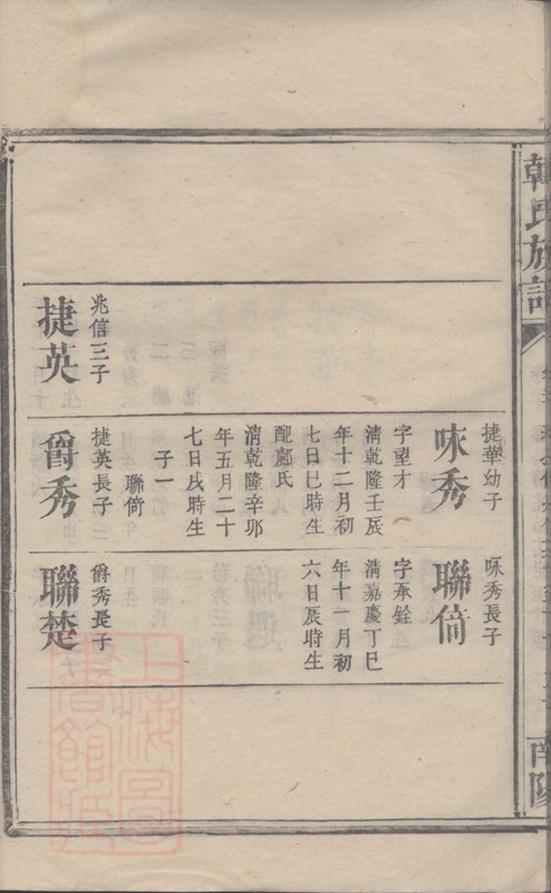 韓氏族譜
南陽
兆信三子
捷英
捷華幼子
咏秀
字望才
清乾隆壬辰
年十二月初
七日巳時生
配鄺氏
清乾隆辛卯
年五月二十
七日戌時生
子一
聯倚
捷英長子
爵秀
咏秀長子
聯倚
字秉銓
清嘉慶丁巳
年十一月初
六日辰時生
爵秀長子
聯楚
上海圖書館藏